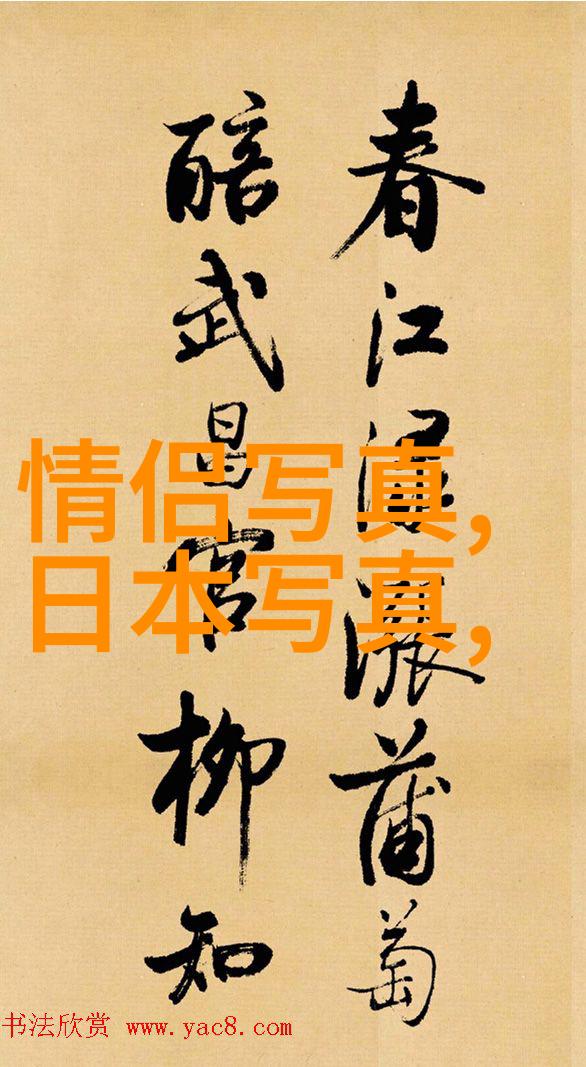 春江渌漲蒲萄
醅武昌官柳知
情侣写真,
日本写真,
书法欣赏 www.yac8.com